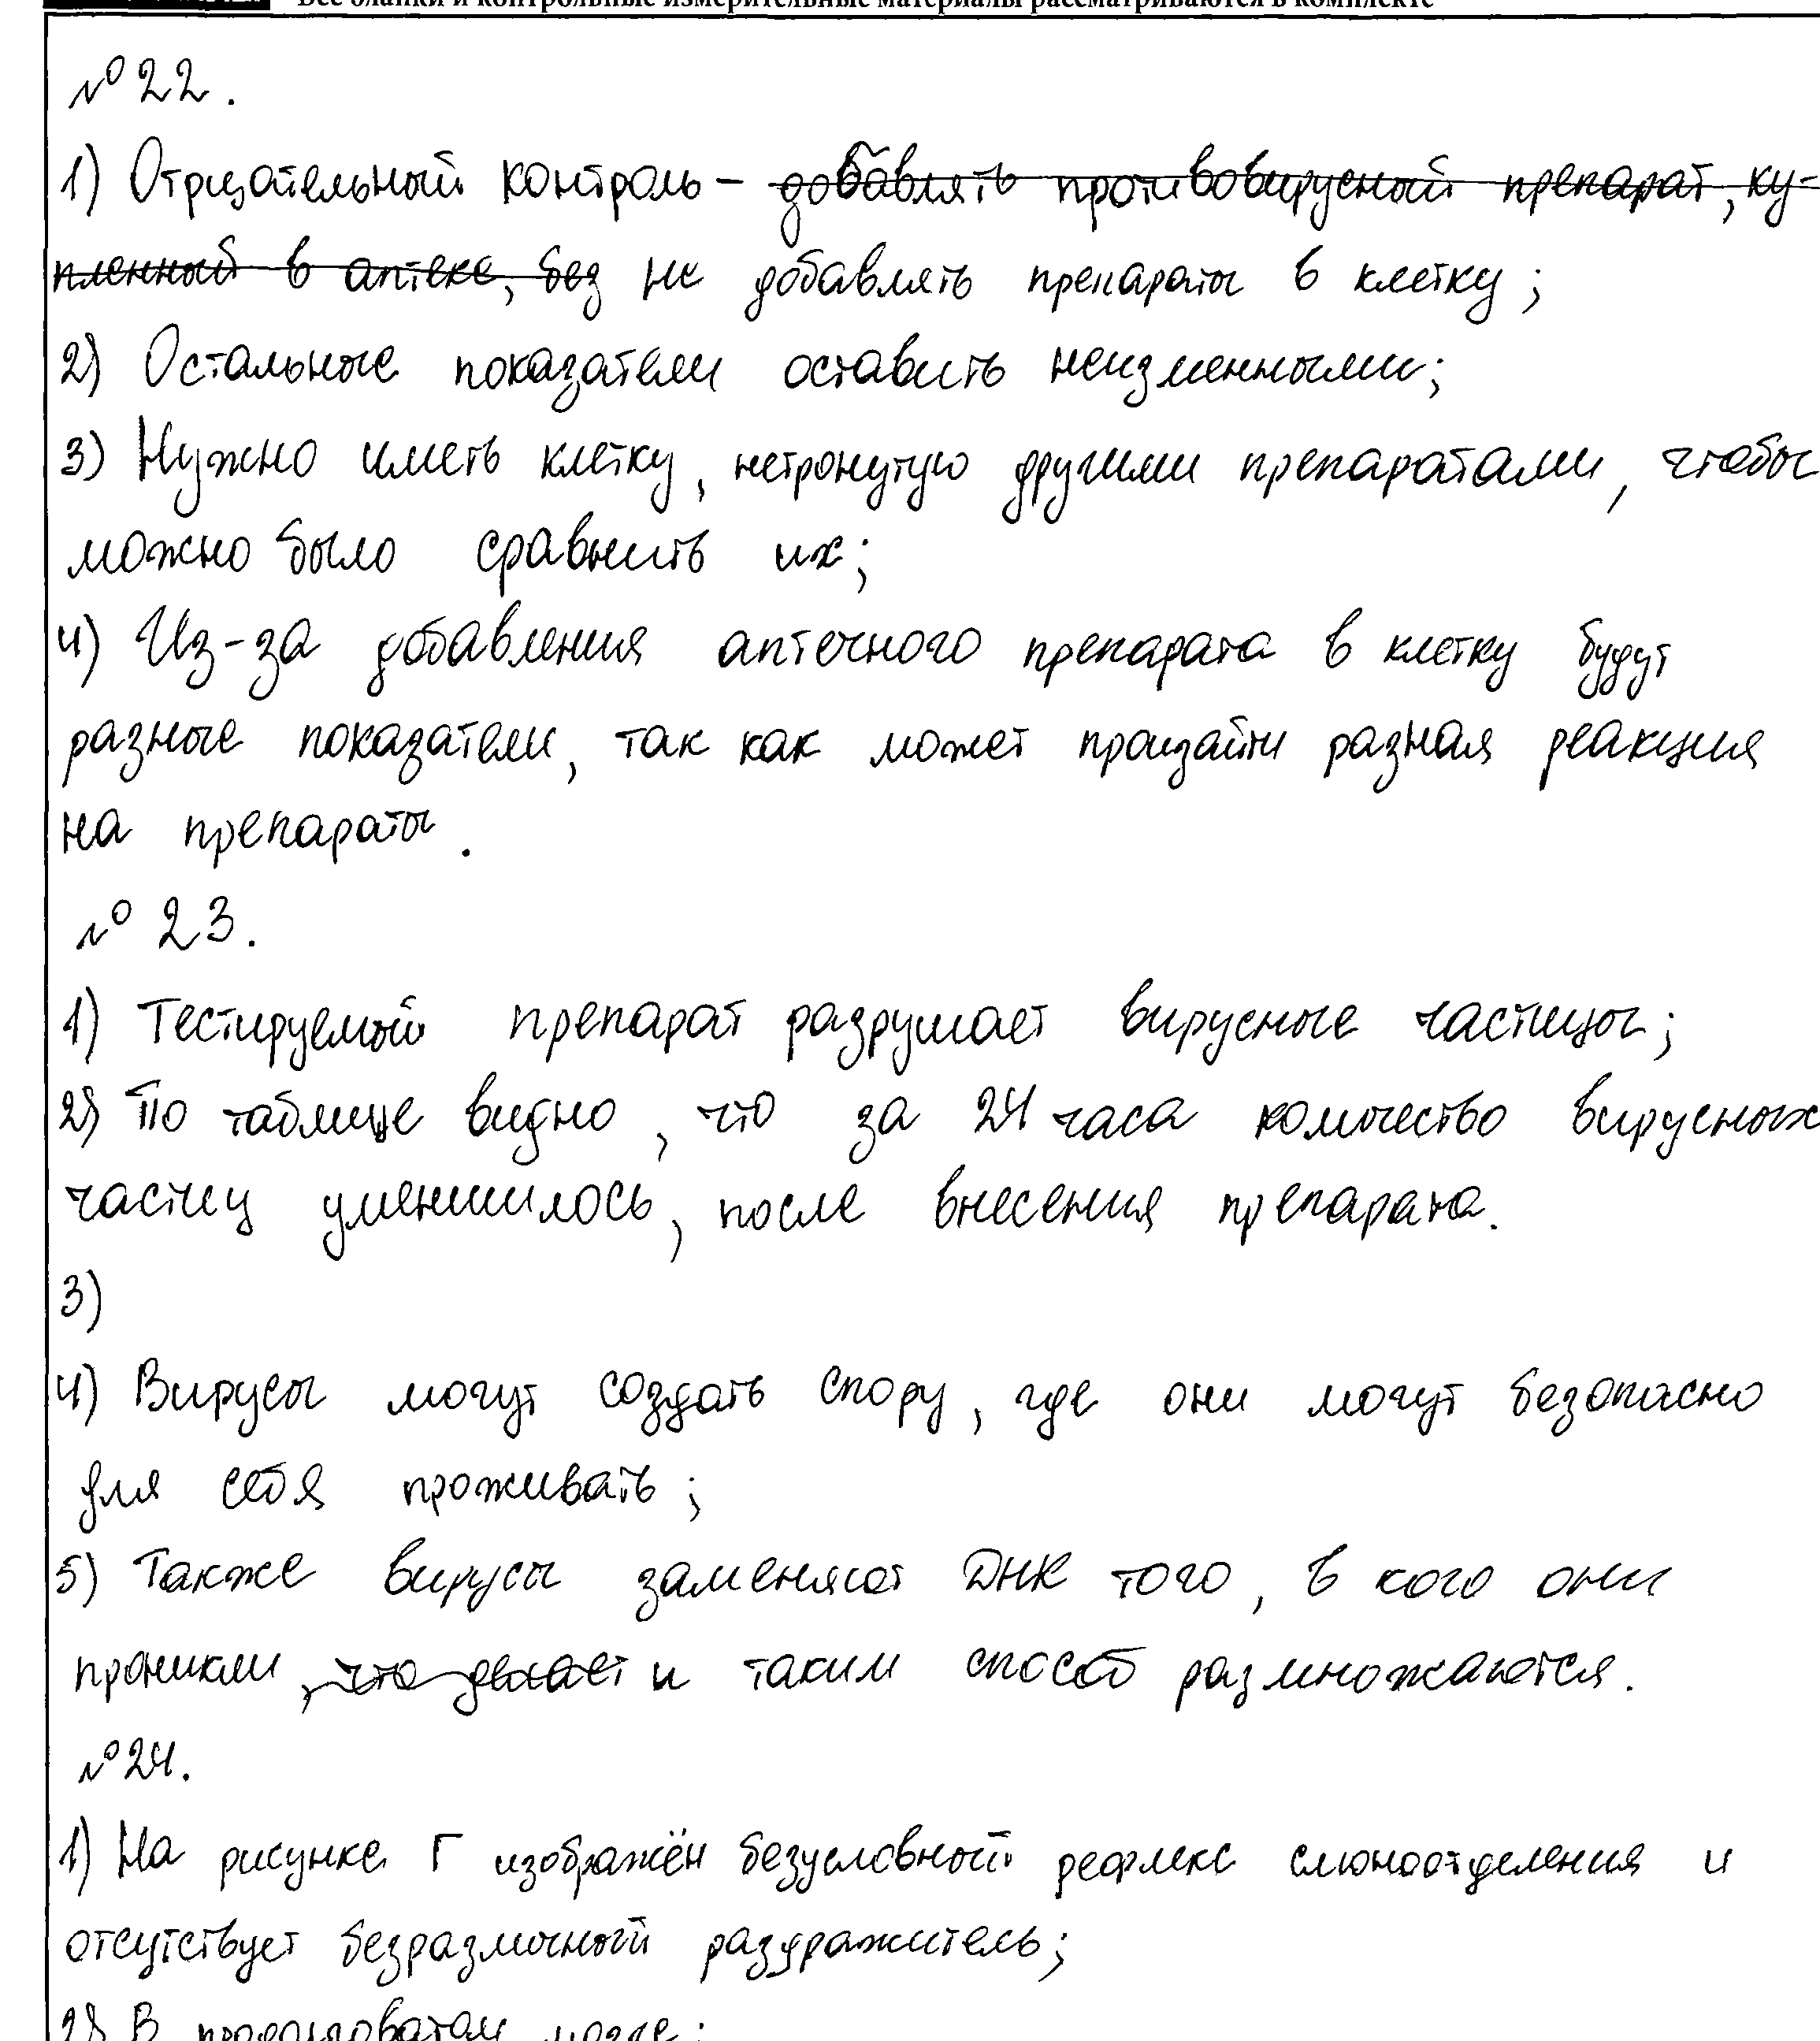 Все бланки и контрольные измерительные материалы рассматриваются в комплекте
№ 22.
1) Отрицательный контроль – добавлять противовирусный препарат, ку-
пленный в аптеке, без не добавлять препараты в клетку;
2) Остальные показатели оставить неизменными;
3) Нужно иметь клетку, нетронутую другими препаратами, чтобы
можно было сравнить их;
4) Из-за добавления аптечного препарата в клетку будут
разные показатели, так как может произайти разная реакция
на препараты.
№ 23.
1) Тестируемый препарат разрушает вирусные частицы;
2) По таблице видно, что за 24 часа количество вирусных
частиц уменшилось, после внесения препарата.
3)
4) Вирусы могут создать спору, где они могут безопасно
для себя проживать;
5) Также вирусы заменяют ДНК того, в кого они
проникли, что делает и таким способ размножаются.
№ 24.
1) На рисунке Г изображён безусловный рефлекс слюноотделения и
отсутствует безразличный раздражитель;
2) В продолговатом мозге;